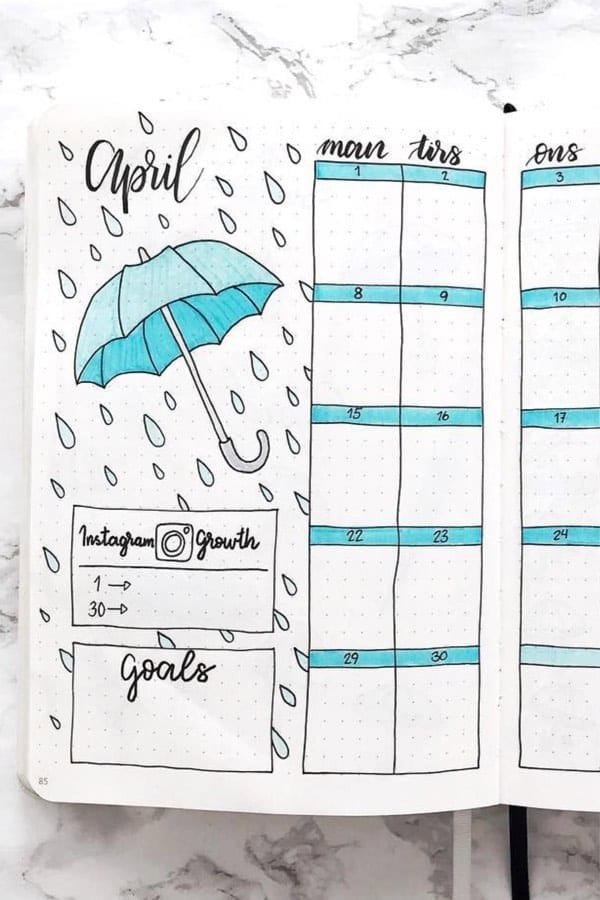 April
Instagram Growth
1 →
30 →
Goals
85
man tirs ons
1 2 3
8 9 10
15 16 17
22 23 24
29 30